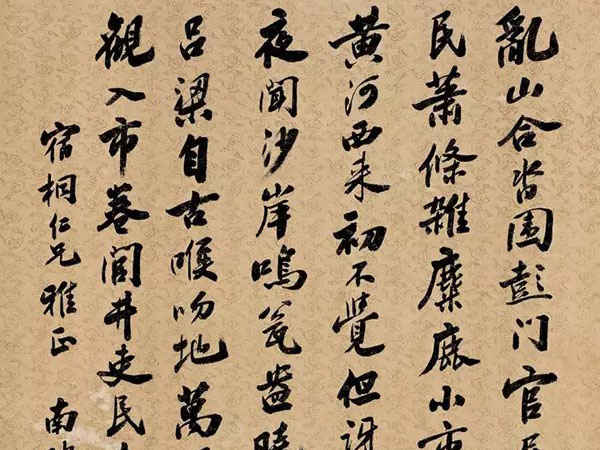 亂山合沓围彭门官
民蕭條雜麋鹿小市
黄河西来初不覺但訝
夜聞沙岸鳴瓮盎曉
吕梁自古喉吻地萬
觀入市卷閭井吏民
宿桐仁兄雅正 南